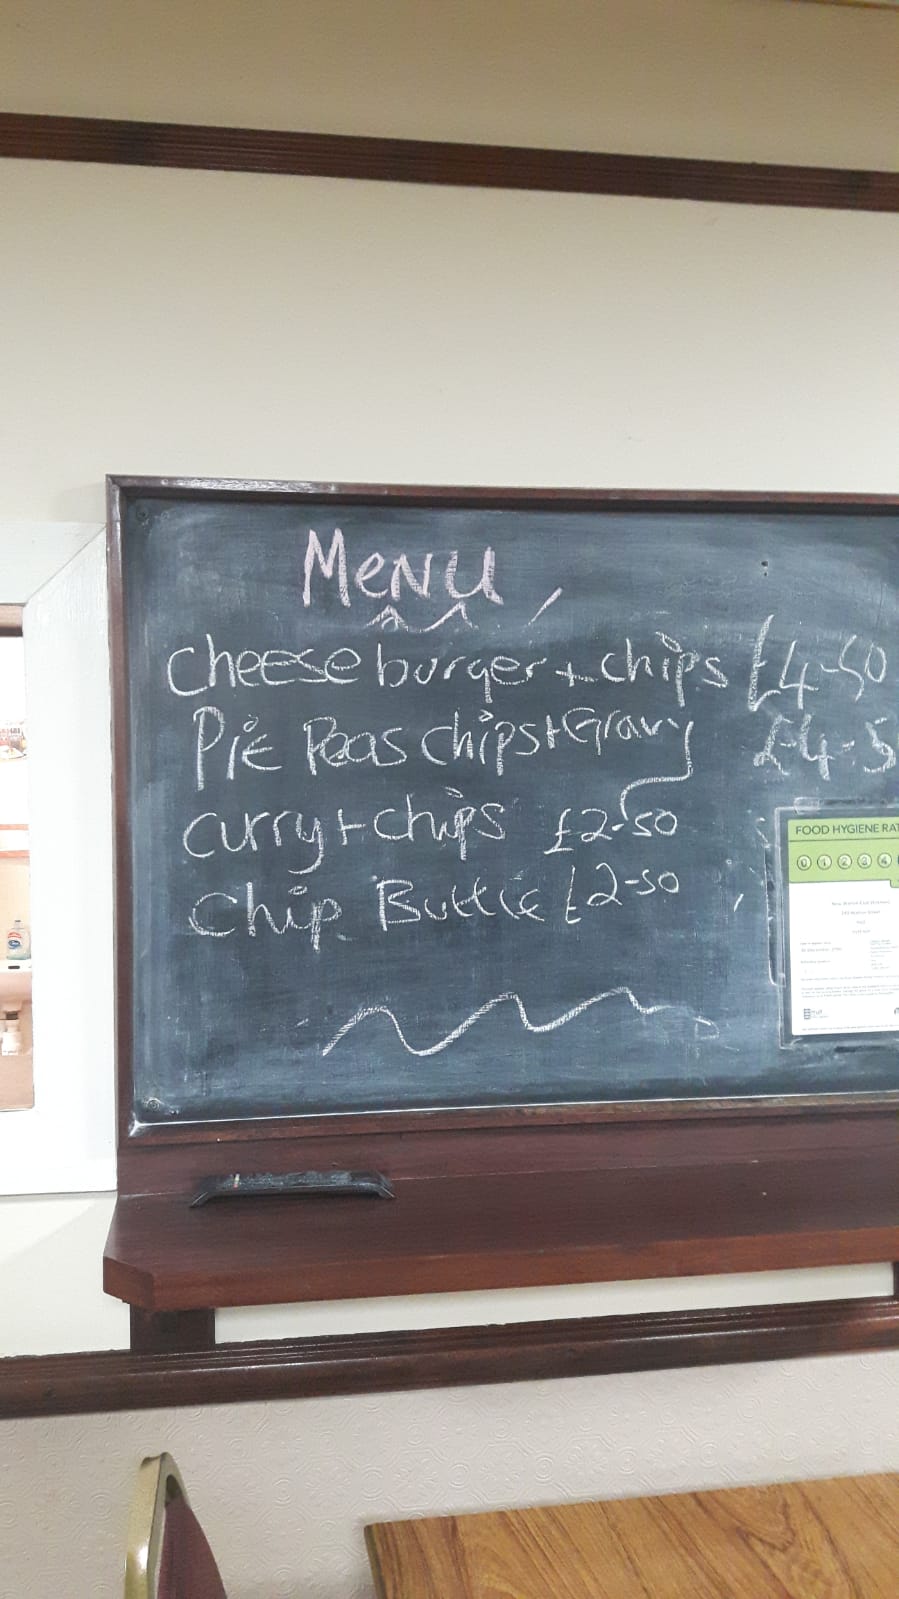 Menu
Cheese burger + chips £4-50
Pie Peas chips + Gravy £4-5
Curry + chips £2-50
Chip Buttie £2-50
FOOD HYGIENE RAT
0 1 2 3 4